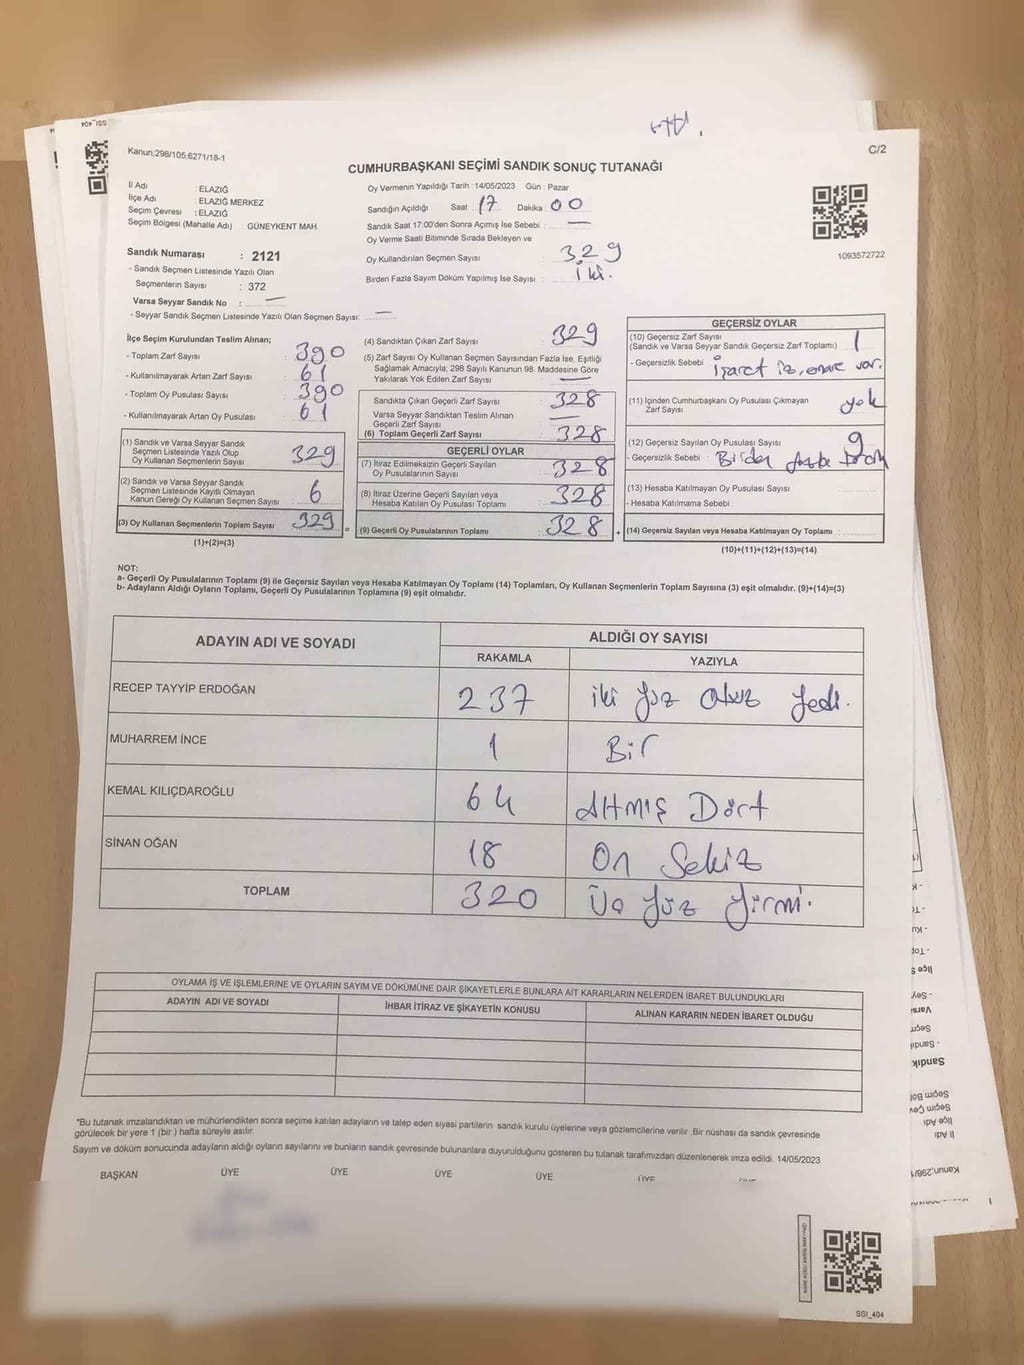 Kanun;298/105;6271/18-1
C/2
CUMHURBAŞKANI SEÇİMİ SANDIK SONUÇ TUTANAĞI
İl Adı : ELAZIĞ
İlçe Adı : ELAZIĞ MERKEZ
Seçim Çevresi : ELAZIĞ
Seçim Bölgesi (Mahalle Adı) : GÜNEYKENT MAH.
Oy Vermenin Yapıldığı Tarih : 14/05/2023 Gün : Pazar
Sandığın Açıldığı Saat : 17 Dakika : 00
Sandık Saat 17:00'den Sonra Açımış İse Sebebi : —
Oy Verme Saati Bitiminde Sırada Bekleyen ve
Oy Kullandırılan Seçmen Sayısı : 329
Birden Fazla Sayım Döküm Yapılmış İse Sayısı : iki.
1093572722
Sandık Numarası : 2121
- Sandık Seçmen Listesinde Yazılı Olan
Seçmenlerin Sayısı : 372
Varsa Seyyar Sandık No : —
- Seyyar Sandık Seçmen Listesinde Yazılı Olan Seçmen Sayısı: —
İlçe Seçim Kurulundan Teslim Alınan;
- Toplam Zarf Sayısı : 390
- Kullanılmayarak Artan Zarf Sayısı : 61
- Toplam Oy Pusulası Sayısı : 390
- Kullanılmayarak Artan Oy Pusulası : 61
(1) Sandık ve Varsa Seyyar Sandık
Seçmen Listesinde Yazılı Olup
Oy Kullanan Seçmenlerin Sayısı 329
(2) Sandık ve Varsa Seyyar Sandık
Seçmen Listesinde Kayıtlı Olmayan
Kanun Gereği Oy Kullanan Seçmen Sayısı 6
(3) Oy Kullanan Seçmenlerin Toplam Sayısı 329 =
(1)+(2)=(3)
(4) Sandıktan Çıkan Zarf Sayısı : 329
(5) Zarf Sayısı Oy Kullanan Seçmen Sayısından Fazla İse, Eşitliği
Sağlamak Amacıyla; 298 Sayılı Kanunun 98. Maddesine Göre
Yakılarak Yok Edilen Zarf Sayısı —
Sandıkta Çıkan Geçerli Zarf Sayısı : 328
Varsa Seyyar Sandıktan Teslim Alınan
Geçerli Zarf Sayısı : —
(6) Toplam Geçerli Zarf Sayısı : 328
GEÇERLİ OYLAR
(7) İtiraz Edilmeksizin Geçerli Sayılan
Oy Pusulalarının Sayısı : 328
(8) İtiraz Üzerine Geçerli Sayılan veya
Hesaba Katılan Oy Pusulası Toplamı : 328
(9) Geçerli Oy Pusulalarının Toplamı : 328 +
GEÇERSİZ OYLAR
(10) Geçersiz Zarf Sayısı
(Sandık ve Varsa Seyyar Sandık Geçersiz Zarf Toplamı) : 1
- Geçersizlik Sebebi : işaret iz, emare var.
(11) İçinden Cumhurbaşkanı Oy Pusulası Çıkmayan
Zarf Sayısı : yok
(12) Geçersiz Sayılan Oy Pusulası Sayısı : 9
- Geçersizlik Sebebi : Birden fazla
(13) Hesaba Katılmayan Oy Pusulası Sayısı :
- Hesaba Katılmama Sebebi :
(14) Geçersiz Sayılan veya Hesaba Katılmayan Oy Toplamı :
(10)+(11)+(12)+(13)=(14)
NOT:
a- Geçerli Oy Pusulalarının Toplamı (9) ile Geçersiz Sayılan veya Hesaba Katılmayan Oy Toplamı (14) Toplamları, Oy Kullanan Seçmenlerin Toplam Sayısına (3) eşit olmalıdır. (9)+(14)=(3)
b- Adayların Aldığı Oyların Toplamı, Geçerli Oy Pusulalarının Toplamına (9) eşit olmalıdır.
ADAYIN ADI VE SOYADI
ALDIĞI OY SAYISI
RAKAMLA YAZIYLA
RECEP TAYYİP ERDOĞAN 237 iki yüz otuz yedi.
MUHARREM İNCE 1 Bir
KEMAL KILIÇDAROĞLU 64 Altmış Dört
SİNAN OĞAN 18 On Sekiz
TOPLAM 320 Üç yüz yirmi.
OYLAMA İŞ VE İŞLEMLERİNE VE OYLARIN SAYIM VE DÖKÜMÜNE DAİR ŞİKAYETLERLE BUNLARA AİT KARARLARIN NELERDEN İBARET BULUNDUKLARI
ADAYIN ADI VE SOYADI İHBAR İTİRAZ VE ŞİKAYETİN KONUSU ALINAN KARARIN NEDEN İBARET OLDUĞU
*Bu tutanak imzalandıktan ve mühürlendikten sonra seçime katılan adayların ve talep eden siyasi partilerin sandık kurulu üyelerine veya gözlemcilerine verilir. Bir nüshası da sandık çevresinde
görülecek bir yere 1 (bir ) hafta süreyle asılır.
Sayım ve döküm sonucunda adayların aldığı oyların sayılarını ve bunların sandık çevresinde bulunanlara duyurulduğunu gösteren bu tutanak tarafımızdan düzenlenerek imza edildi. 14/05/2023
BAŞKAN ÜYE ÜYE ÜYE ÜYE ÜYE
SSI_404